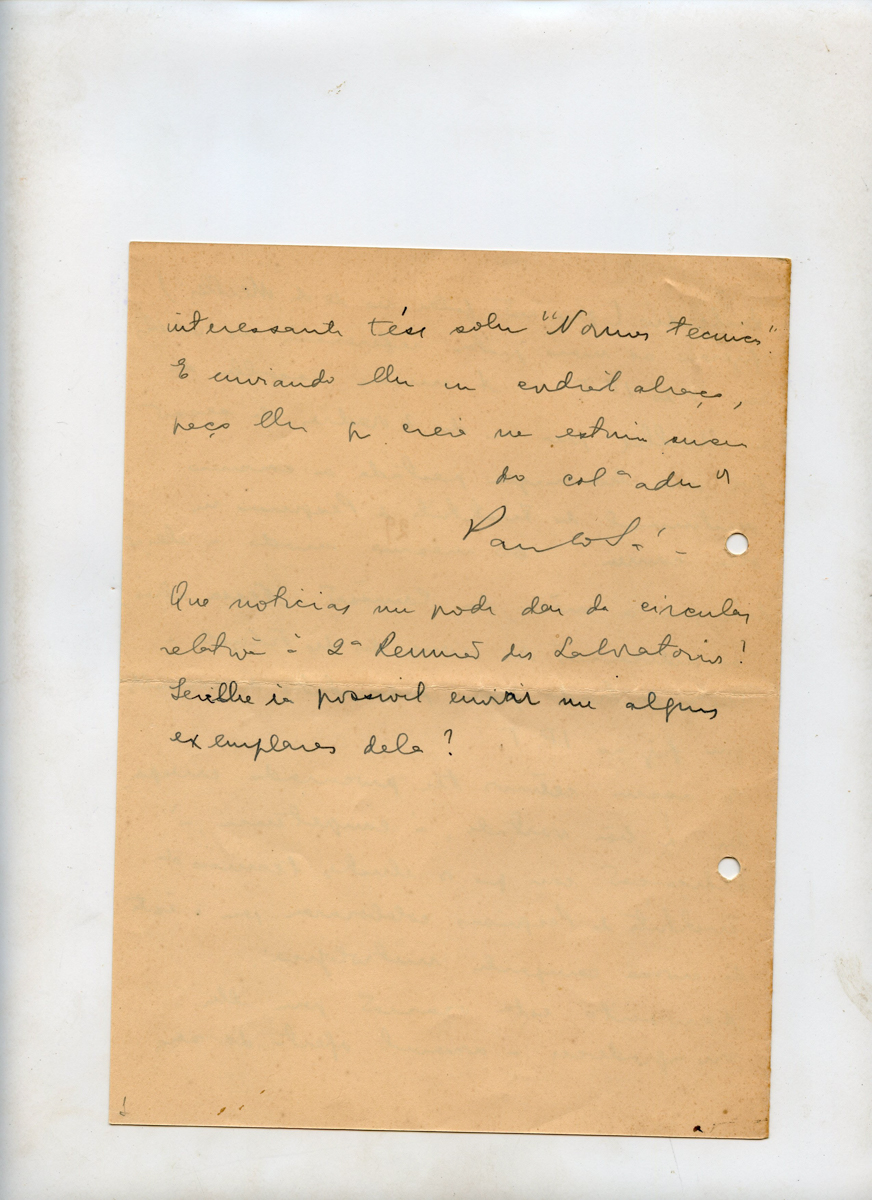 interessante tése sobre "Normas tecnicas".
E enviando lhe um cordial abraço,
peço lhe q creia na estima sincera
do col^a adm^or
Paulo Sá
Que noticias me pode dar da circular
relativa à 2ª Reunião dos Laboratorios?
Ser-lhe ia possivel enviar me alguns
exemplares dela?